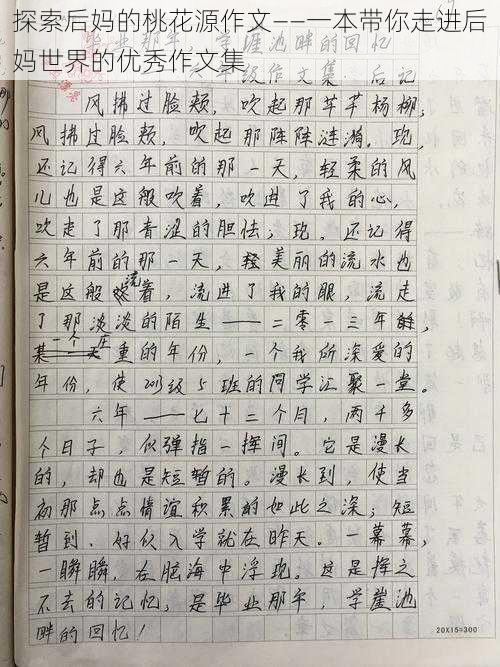 探索后妈的桃花源作文——一本带你走进后
妈世界的优秀作文集
涯池畔的回忆
级作文集·后记
风拂过脸颊，吹起那芊芊杨柳，
风拂过脸颊，吹起那阵阵涟漪。现，
还记得六年前的那一天，轻柔的风
儿也是这般吹着，吹进了我的心，
吹走了那青涩的胆怯；现，还记得
六年前的那一天，轻美丽的流水也
是这般流着，流进了我的眼，流走
了那淡淡的陌生——二零一三年，
一个庄重的年份，一个我所深爱的
年份，使2013级5班的同学汇聚一堂。
六年——七十二个月，两千多
个日子，似弹指一挥间。它是漫长
的，却也是短暂的。漫长到，使当
初那点点情谊积累的如此之深；短
暂到，好似入学就在昨天。一幕幕，
一瞬瞬，在脑海中浮现。这是挥之
不去的记忆，是毕业那年，学崖池
畔的回忆！
20X15=300